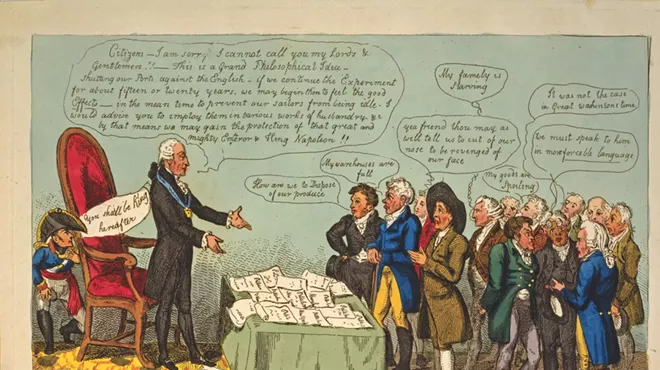 Citizens — I am sorry, I cannot call you my Lords &
Gentlemen!! — This is a Grand Philosophical Idea —
Shutting our Ports against the English — if we continue the Experiment
for about fifteen or twenty years, we may begin then to feel the good
Effects — in the mean time to prevent our sailors from being idle. I
would advise you to employ them in various works of husbandry, &c
by that means we may gain the protection of that great and
mighty Emperor & King Napoleon!!
You shall be King
hereafter
How are we to Dispose
of our produce
My warehouses are
full
yea friend thou may as
well tell us to cut of our
nose to be revenged of
our face
My famely is
Starving
My goods are
Spoiling
It was not the case
in Great washintons time
We must speak to him
in more forcable language